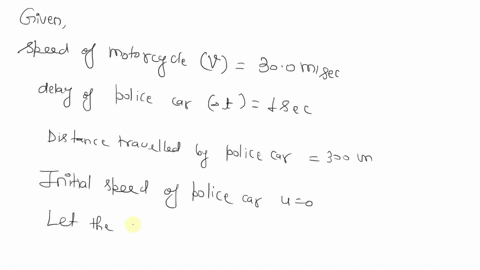 Given,
speed of motorcycle (V) = 30.0 m/sec
delay of police car (Δt) = 1 sec
Distance travelled by police car = 300 m
Initial speed of police car u=0
Let the